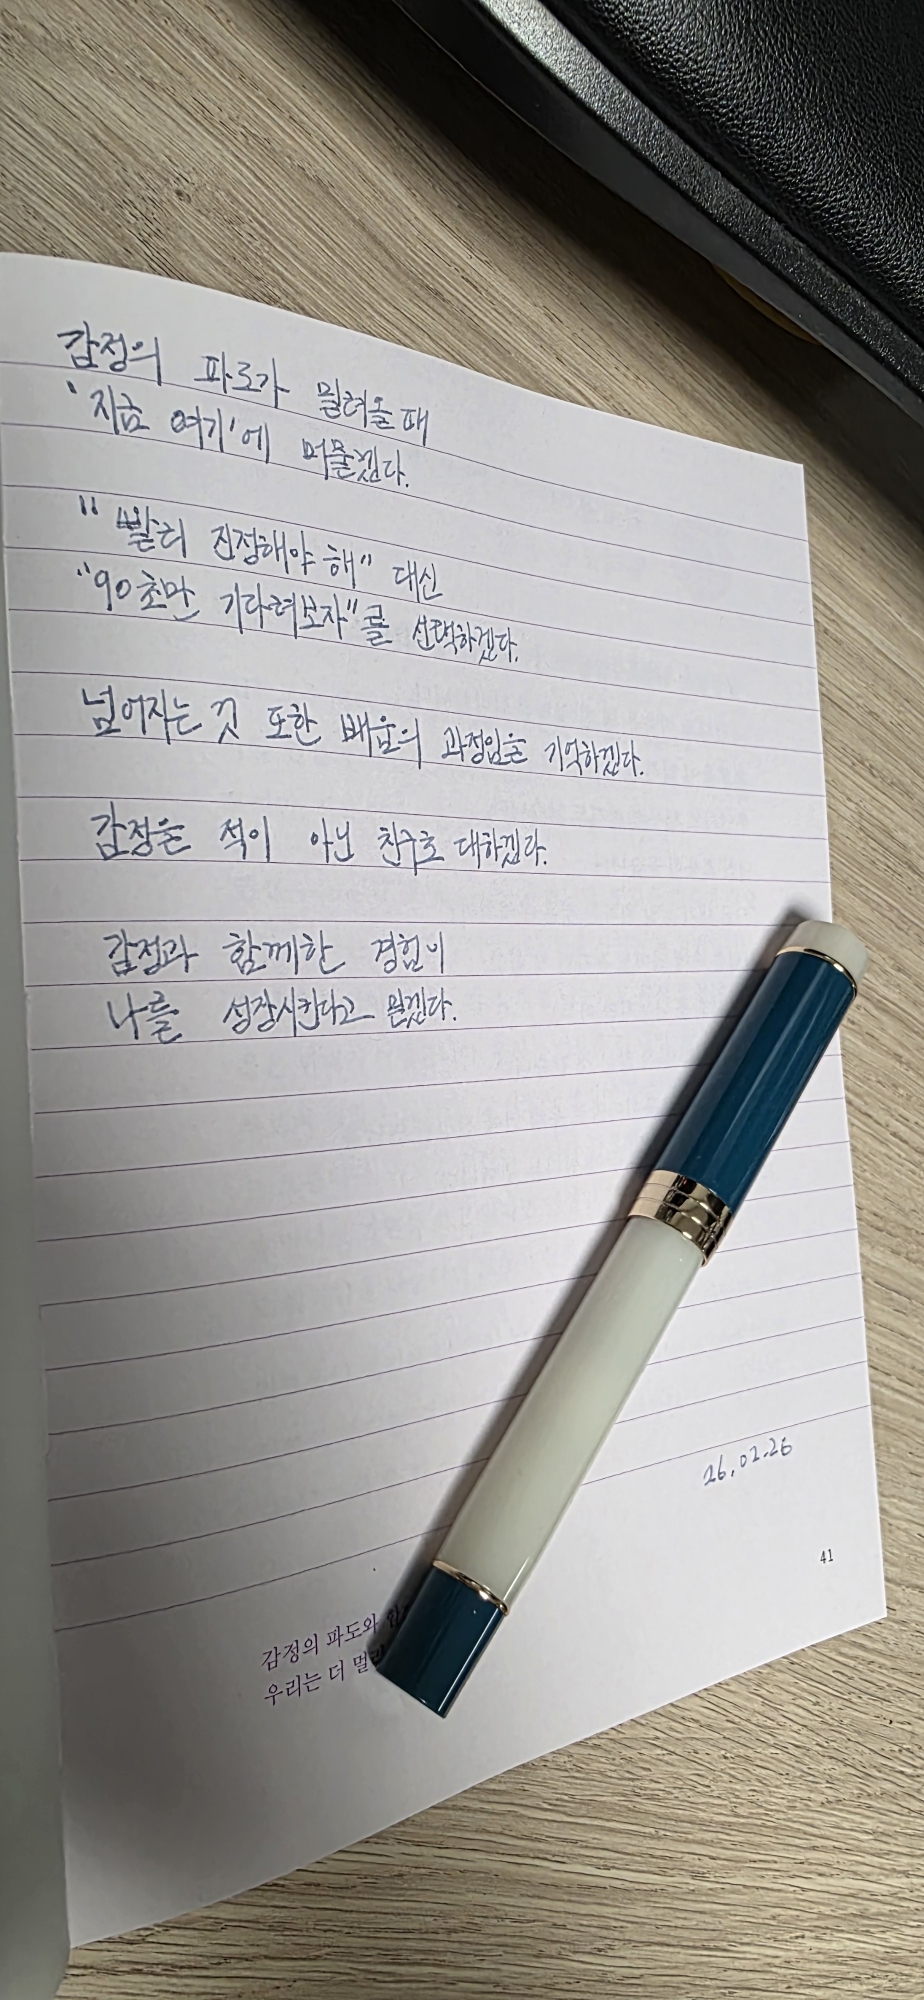 감정의 파도가 밀려올 때
'지금 여기'에 머물겠다.
"빨리 진정해야 해" 대신
"90초만 기다려보자"를 선택하겠다.
넘어지는 것 또한 배움의 과정임을 기억하겠다.
감정을 적이 아닌 친구로 대하겠다.
감정과 함께한 경험이
나를 성장시킨다고 믿겠다.
26.02.26
41
감정의 파도와
우리는 더 멀리